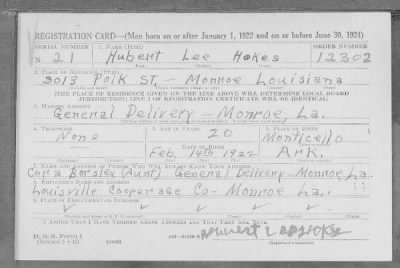 REGISTRATION CARD—(Men born on or after January 1, 1922 and on or before June 30, 1924)
SERIAL NUMBER 1. NAME (Print) ORDER NUMBER
N 21 Hubert Lee Hokes 12302
2. PLACE OF RESIDENCE (Print)
3013 Polk St. — Monroe Louisiana
[THE PLACE OF RESIDENCE GIVEN ON THE LINE ABOVE WILL DETERMINE LOCAL BOARD
JURISDICTION; LINE 2 OF REGISTRATION CERTIFICATE WILL BE IDENTICAL]
3. MAILING ADDRESS
General Delivery — Monroe, La.
4. TELEPHONE 5. AGE IN YEARS 6. PLACE OF BIRTH
None 20 Monticello
DATE OF BIRTH
Feb. 14th 1922 Ark.
7. NAME AND ADDRESS OF PERSON WHO WILL ALWAYS KNOW YOUR ADDRESS
Cora (Aunt) General Delivery — Monroe, La.
8. EMPLOYER'S NAME AND ADDRESS
Louisville Cooperage Co — Monroe La.
9. PLACE OF EMPLOYMENT OR BUSINESS
I AFFIRM THAT I HAVE VERIFIED ABOVE ANSWERS AND THAT THEY ARE TRUE.
D. S. S. Form 1
(Revised 6-1-42) (over)